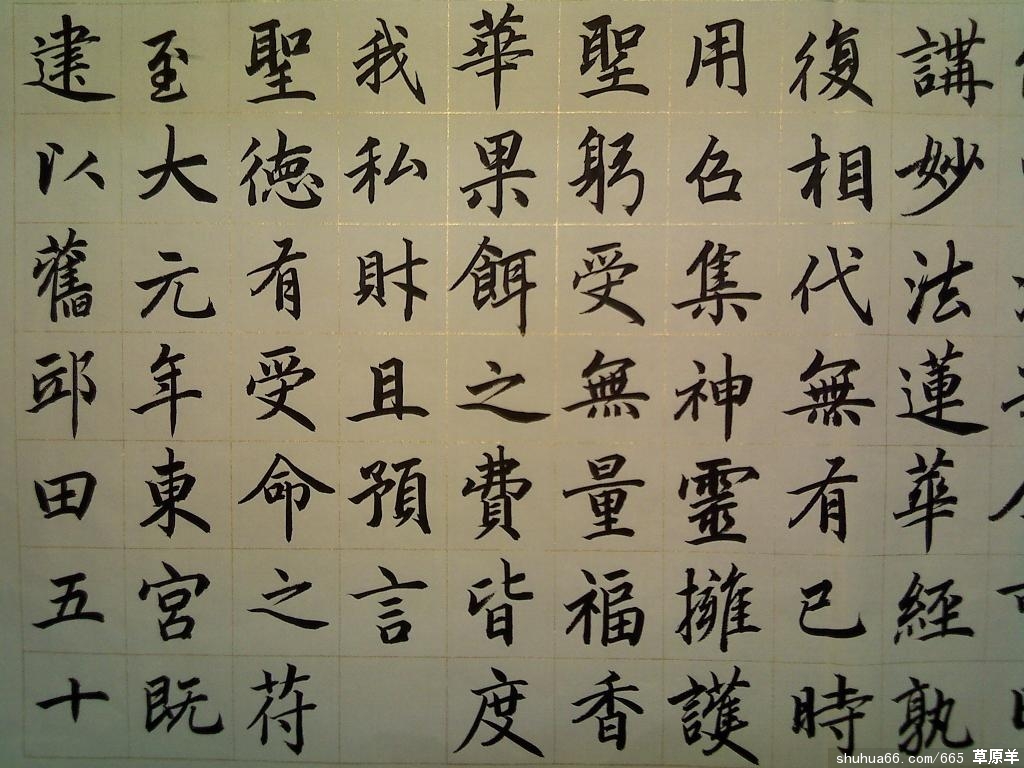 講妙法蓮華經孰
復相代無有已時
用召集神靈擁護
聖躬受無量福香
華果餌之費皆度
我私財且預言
聖德有受命之符
至大元年東宮既
建以舊邸田五十
shuhua66.com/665 草原羊